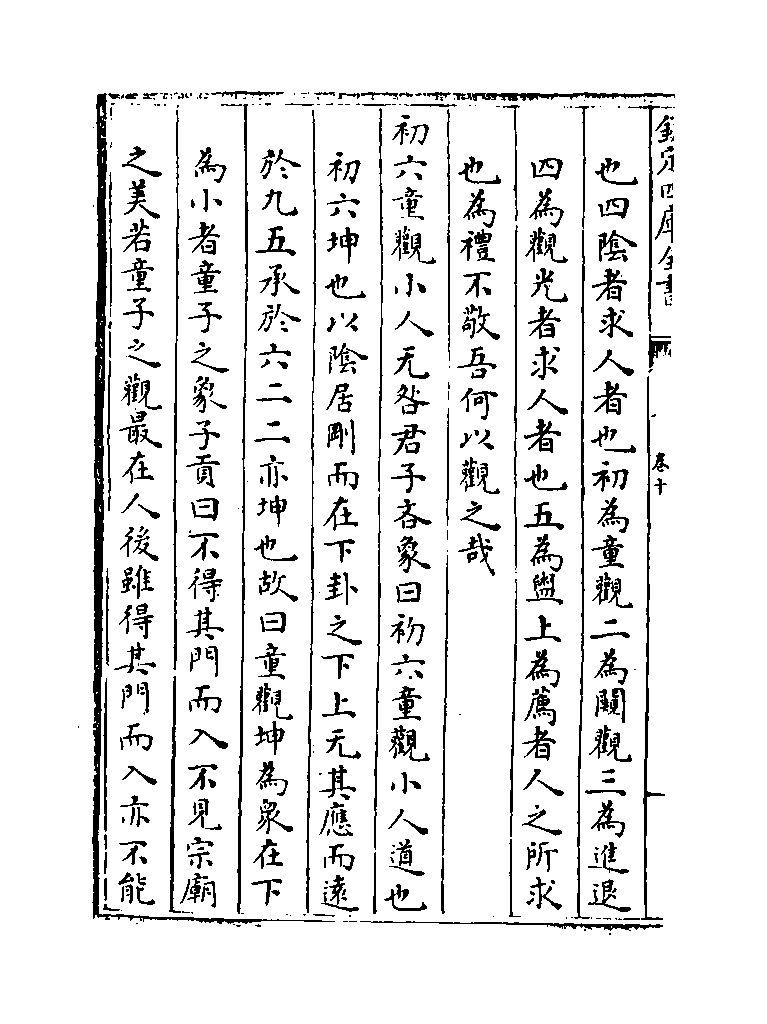 欽定四庫全書
卷十
也四陰者求人者也初為童觀二為闚觀三為進退
四為觀光者求人者也五為盥上為薦者人之所求
也為禮不敬吾何以觀之哉
初六童觀小人无咎君子吝象曰初六童觀小人道也
初六坤也以陰居剛而在下卦之下上无其應而遠
於九五承於六二二亦坤也故曰童觀坤為衆在下
為小者童子之象子貢曰不得其門而入不見宗廟
之美若童子之觀最在人後雖得其門而入亦不能